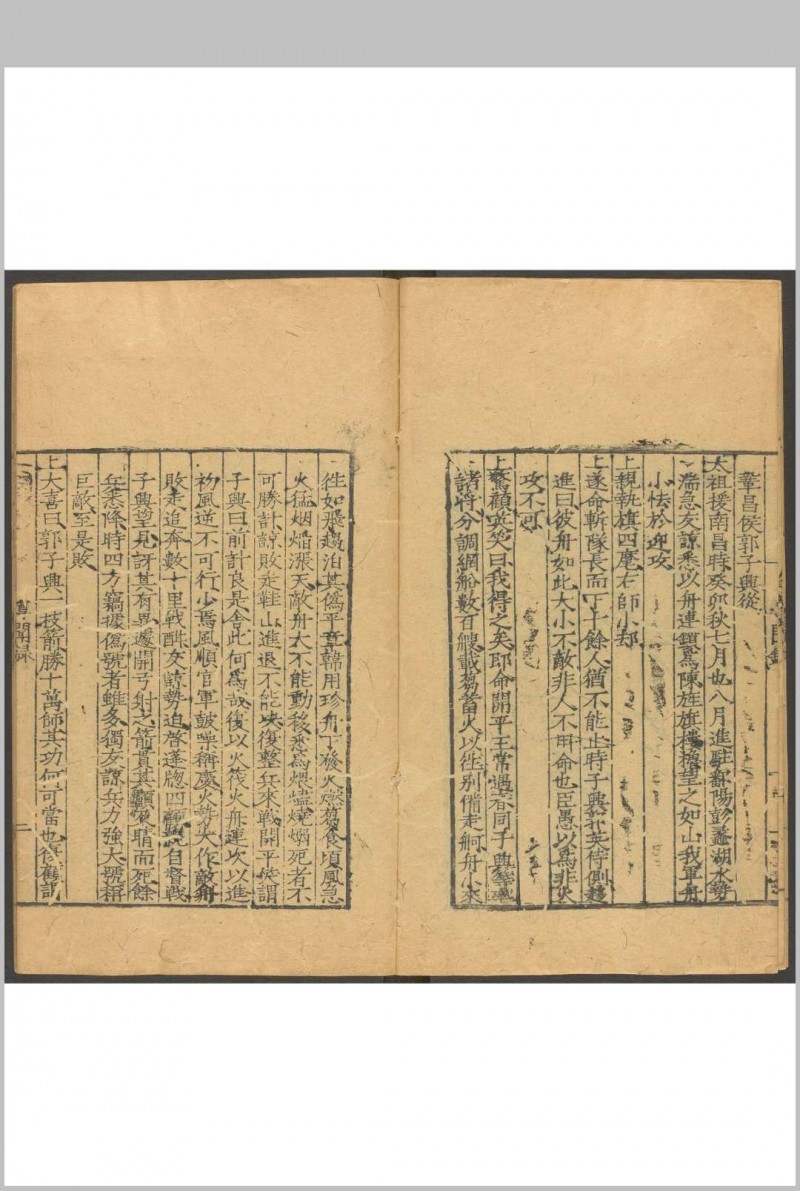 鞏昌侯郭子興從
太祖援南昌時癸卯秋七月也八月進駐鄱陽彭蠡湖水勢
湍急友諒悉以舟連鎖爲陳旌旗樓櫓望之如山我軍舟
小怯於迎攻
上親執旗四麾右師小却
上遂命斬隊長而下十餘人猶不能止時子興 英侍側趍
進曰彼舟如此大小不敵非人不用命也臣愚以爲非火
攻不可
上驚顧英笑曰我得之矣即命開平王常遇春同子興
諸將分調網船數百艘載蒭蓄火以徃別備走舸舟小來
徃如飛趨泊其僞平章韓用珍舟下發火燃蒭食頃風急
火猛烟熖漲天敵舟大不能動移悉爲煨燼燒溺死者不
可勝計諒敗走鞋山進退不能 復整兵來戰開平 謂
子興曰前計良是舍此何爲哉復以火筏火舟連次以進
初風逆不可行少焉風順官軍鼓噪稱慶火 大作敵舟
敗走追奔數十里戰酣友諒勢迫啓蓬牕四顧 自督戰
子興望見訝其有異遽開弓射之箭貫其顱及睛而死餘
兵悉降時四方竊據僞號者雖多獨友諒兵力強大號稱
巨敵至是敗
上大喜曰郭子興一枝箭勝十萬師其功何可當也
聞錄
二